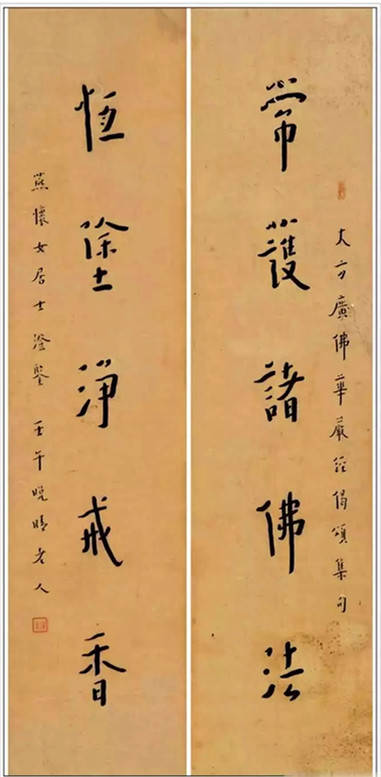 常護諸佛法
大方廣佛華嚴經偈頌集句
恆塗淨戒香
燕懷女居士澄鑒 壬午晚晴老人